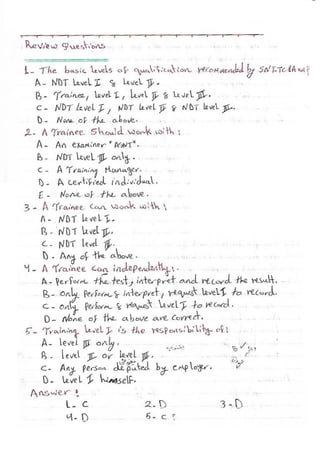 Review Questions
1- The basic levels of qualification recommended by SNT-TC-1A are?
A- NDT Level I & Level II.
B- Trainee, level I, level II & level III.
C- NDT level I, NDT level II & NDT level III.
D- None of the above.
2- A Trainee Should work with:
A- An examiner "ASNT".
B- NDT level III only.
C- A Training Manager.
D- A certified individual.
E- None of the above.
3- A Trainee can work with:
A- NDT level I.
B- NDT level II.
C- NDT level III.
D- Any of the above.
4- A Trainee can independently:
A- Perform the test, interpret and record the result.
B- only Perform & interpret, request level I to record.
C- only Perform & request level I to record.
D- None of the above are correct.
5- Training level I is the responsibility of:
A- level III only.
B- level II or level III.
C- Any person deputed by employer.
D- level I himself.
Answer:
1- C 2- D 3- D
4- D 5- C ?